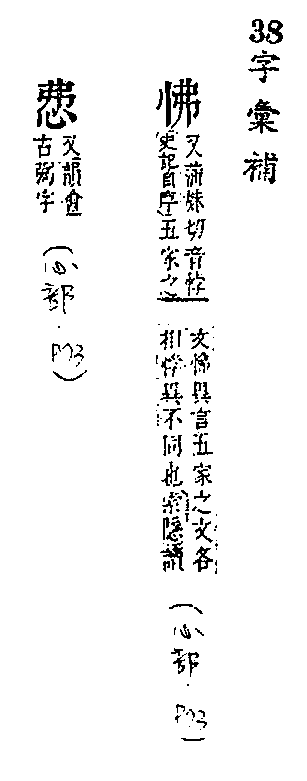 38字彙補
怫
又蒲妹切音悖
史記自序五家之
文怫異言五家之文各
相悖異不同也索隱讀
(心部．P73)
又韻會
古弼字
(心部．P73)